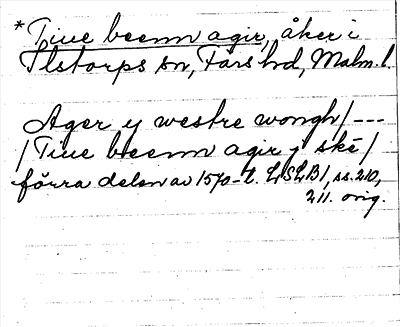 * Tiue beenn agir, åker i
Ilstorps sn, Färs hd, Malm. l.
Ager y westre wongh / ---
/ Tiue beenn agir y skē /
förra delen av 1570-t. LSLB 1, ss. 210,
211. orig.